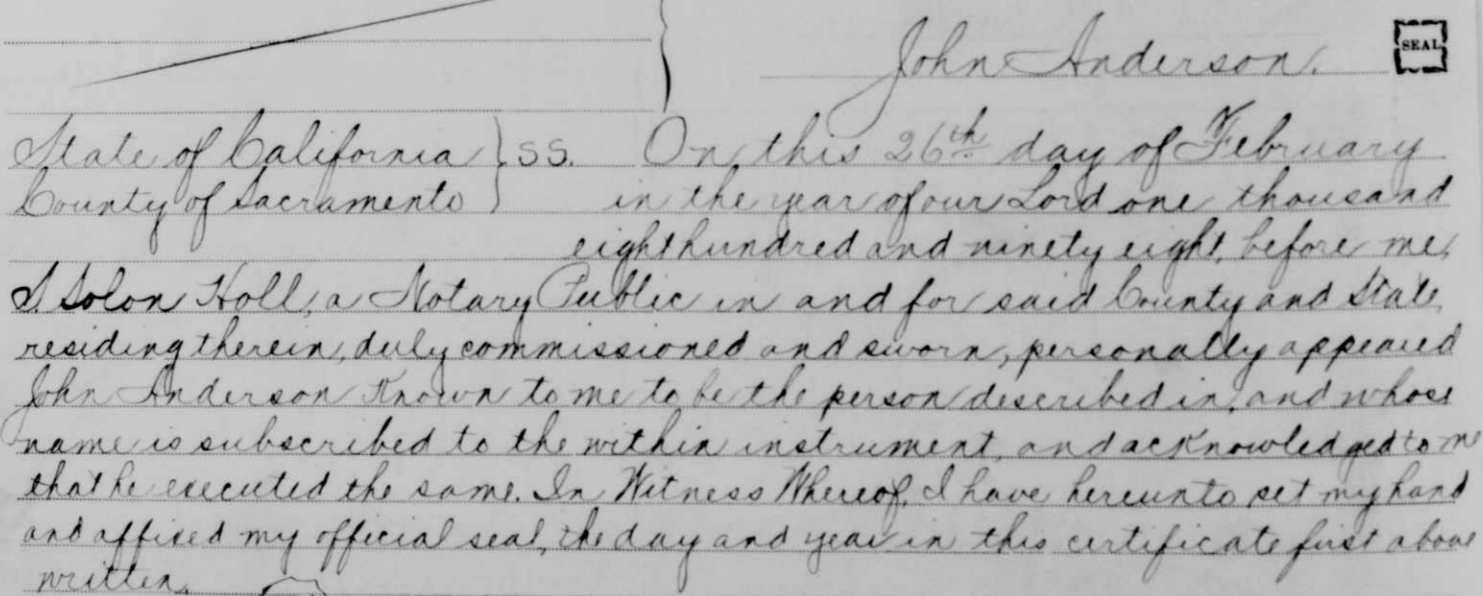 John Anderson. SEAL
State of California } ss. On this 26th day of February
County of Sacramento } in the year of our Lord one thousand
eight hundred and ninety eight, before me,
S. Solon Holl, a Notary Public in and for said County and State,
residing therein, duly commissioned and sworn, personally appeared
John Anderson Known to me to be the person described in, and whose
name is subscribed to the within instrument, and acknowledged to me
that he executed the same. In Witness Whereof, I have hereunto set my hand
and affixed my official seal, the day and year in this certificate first above
written.